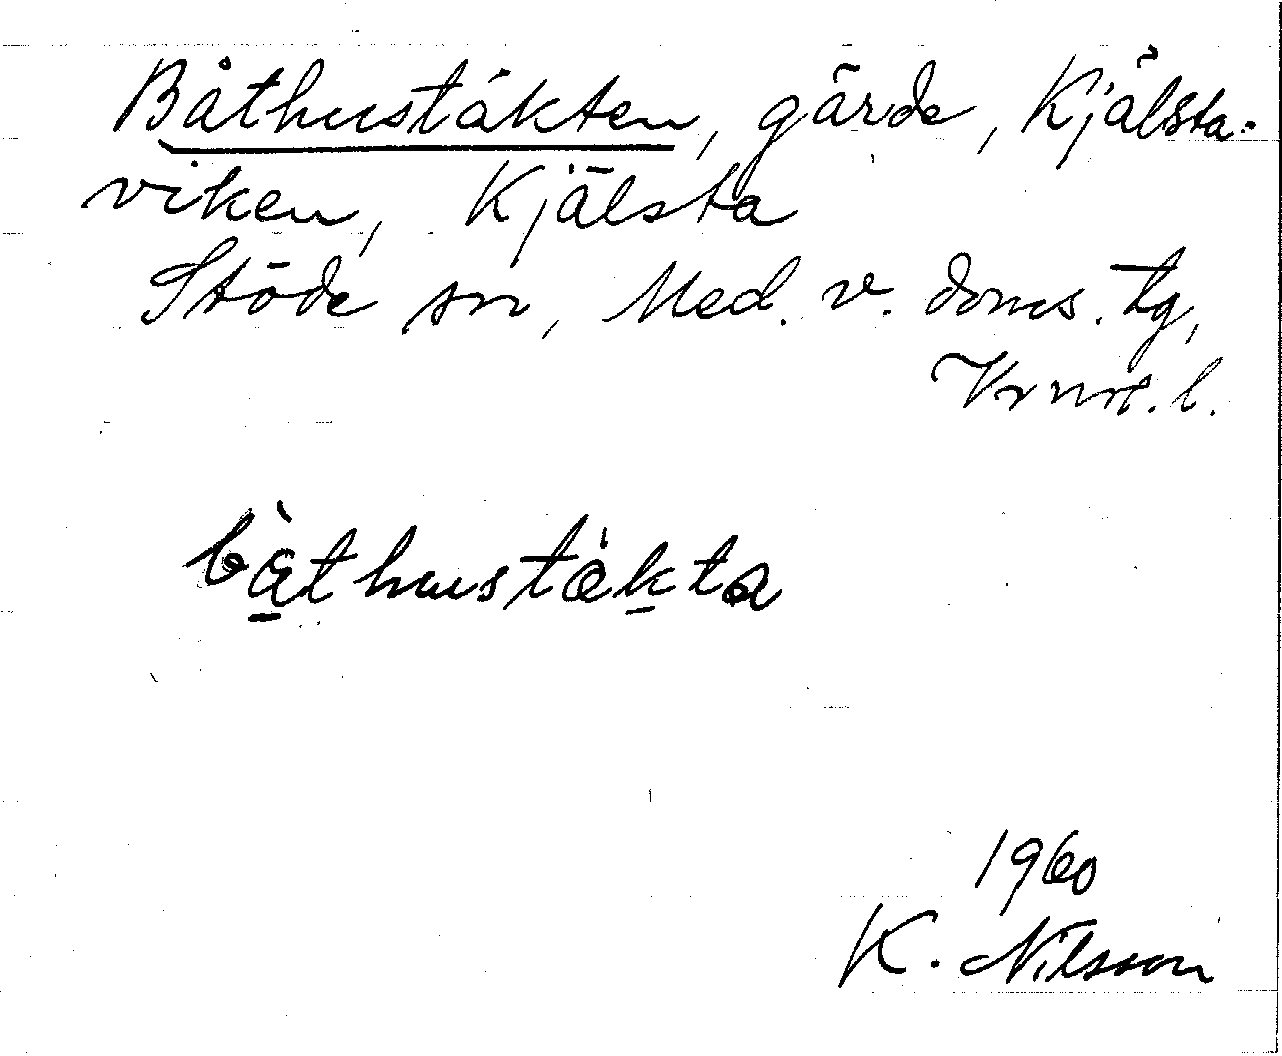 Båthustäkten, gärde, Kjälsta-
viken, Kjälsta
Stöde sn, Med. v. doms. tg,
Vrnrl. l.
bàthustákta
1960
K. Nilsson